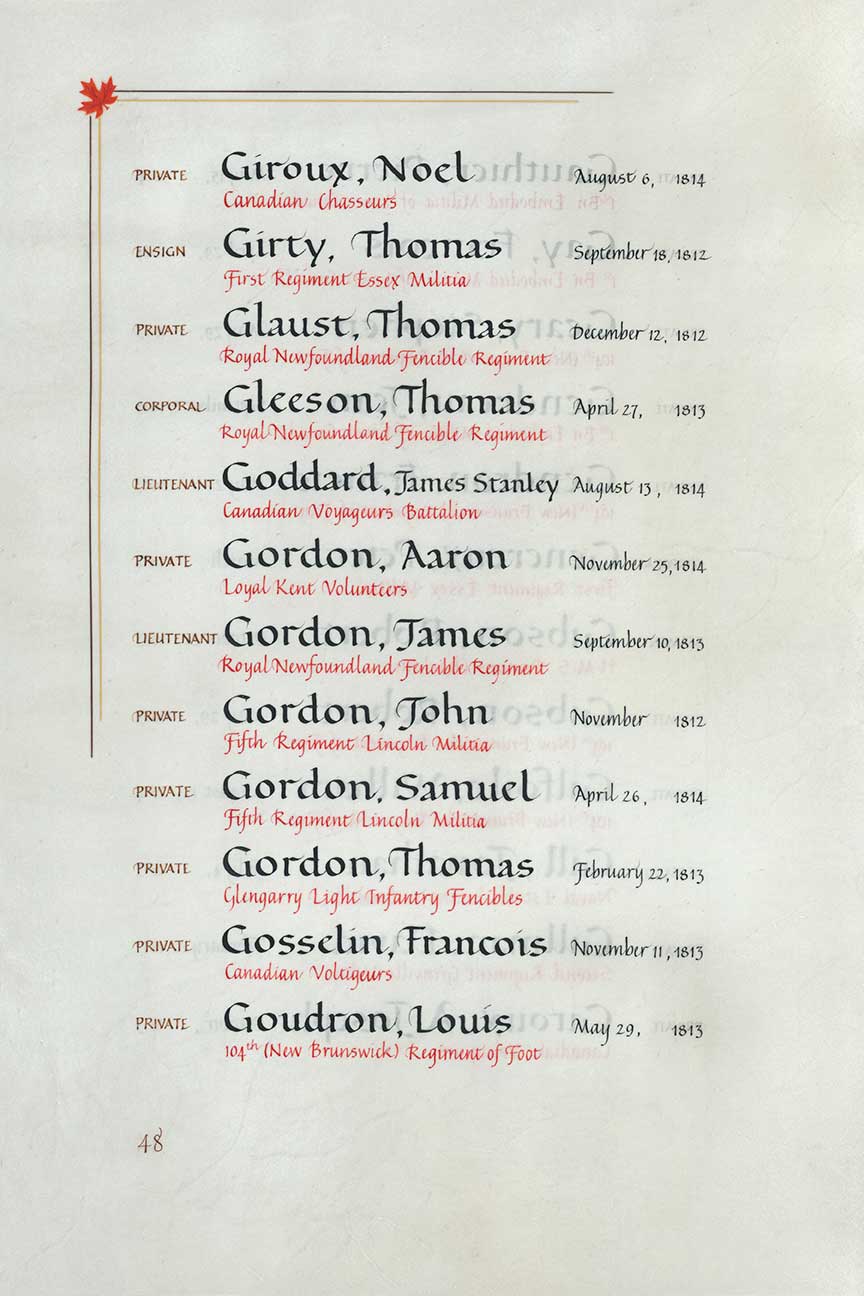 PRIVATE Giroux, Noel August 6, 1814
Canadian Chasseurs
ENSIGN Girty, Thomas September 18, 1812
First Regiment Essex Militia
PRIVATE Glaust, Thomas December 12, 1812
Royal Newfoundland Fencible Regiment
CORPORAL Gleeson, Thomas April 27, 1813
Royal Newfoundland Fencible Regiment
LIEUTENANT Goddard, James Stanley August 13, 1814
Canadian Voyageurs Battalion
PRIVATE Gordon, Aaron November 25, 1814
Loyal Kent Volunteers
LIEUTENANT Gordon, James September 10, 1813
Royal Newfoundland Fencible Regiment
PRIVATE Gordon, John November 1812
Fifth Regiment Lincoln Militia
PRIVATE Gordon, Samuel April 26, 1814
Fifth Regiment Lincoln Militia
PRIVATE Gordon, Thomas February 22, 1813
Glengarry Light Infantry Fencibles
PRIVATE Gosselin, Francois November 11, 1813
Canadian Voltigeurs
PRIVATE Goudron, Louis May 29, 1813
104th (New Brunswick) Regiment of Foot
48